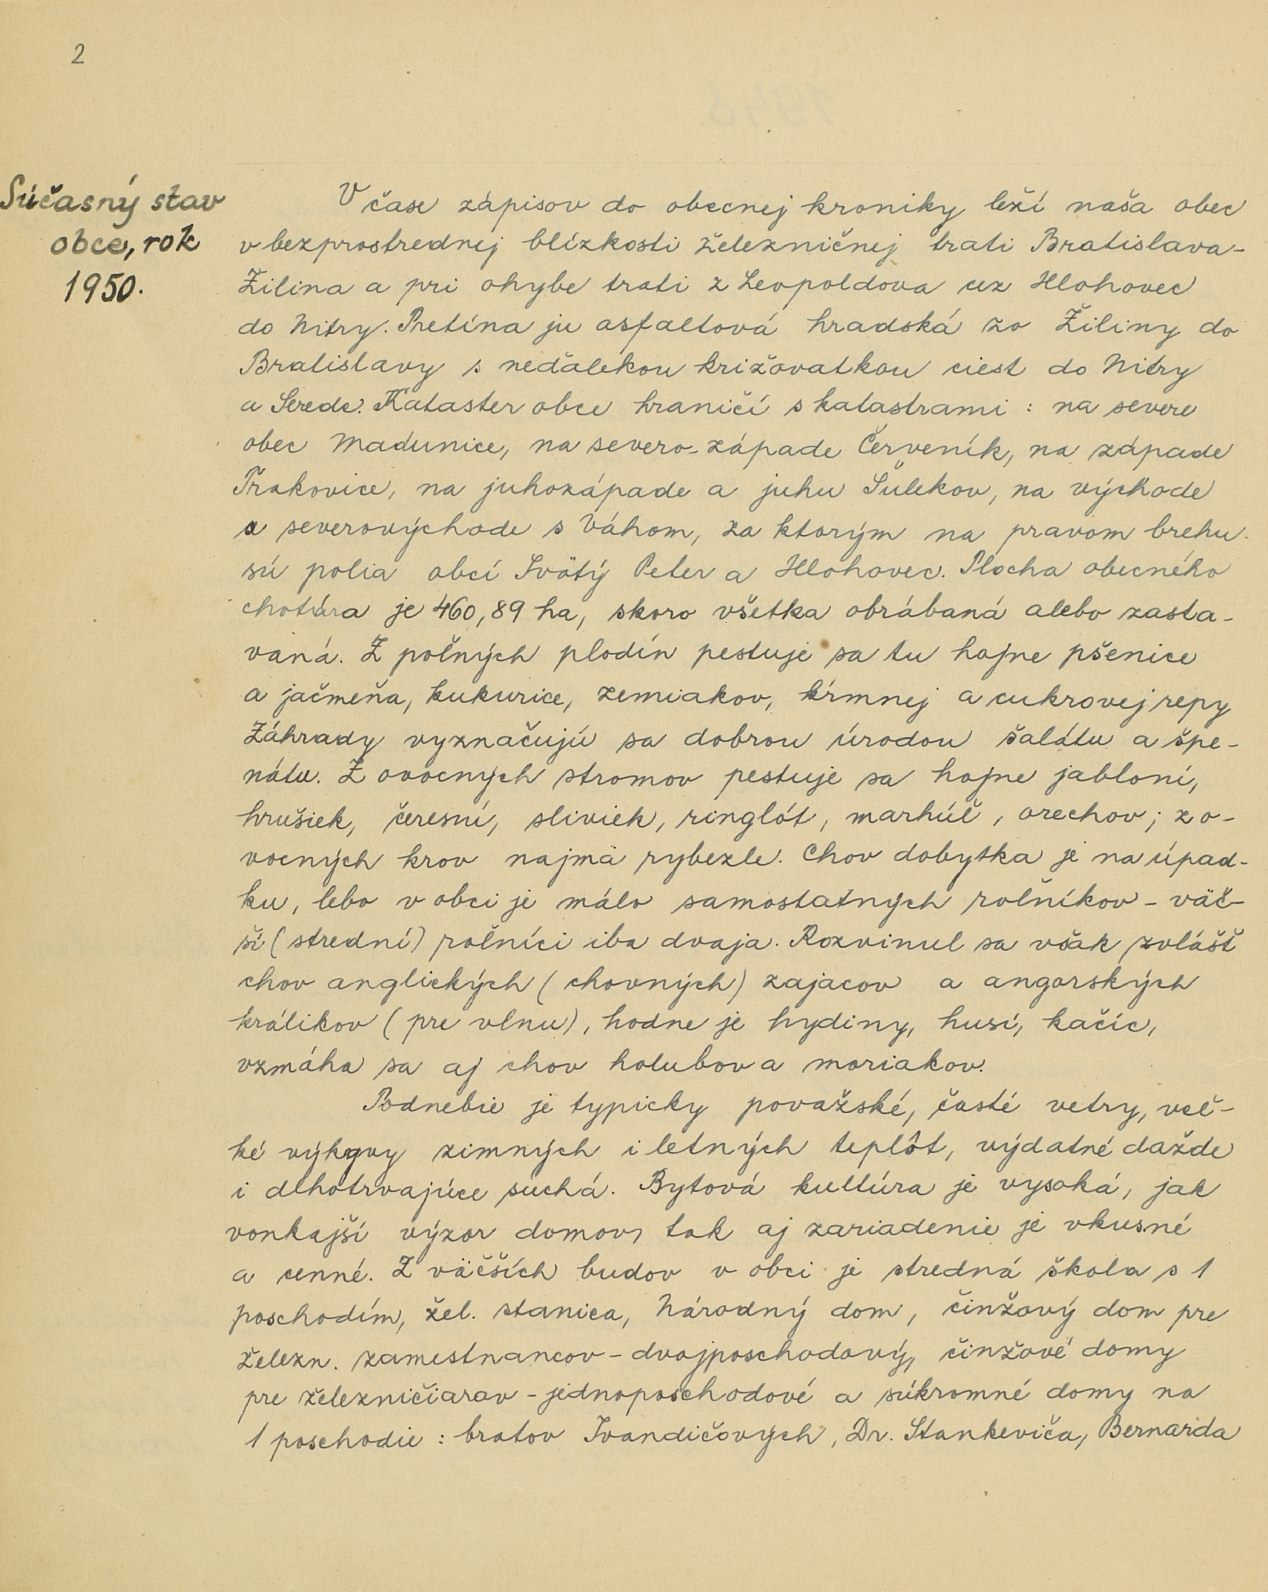 2
Súčasný stav
obce, rok
1950.
V čase zápisov do obecnej kroniky leží naša obec
v bezprostrednej blízkosti železničnej trati Bratislava-
Žilina a pri ohybe trati z Leopoldova cez Hlohovec
do Nitry. Pretína ju asfaltová hradská zo Žiliny do
Bratislavy s neďalekou križovatkou ciest do Nitry
a Serede. Kataster obce hraničí s katastrami : na severe
obec Madunice, na severo-západe Červeník, na západe
Trakovice, na juhozápade a juhu Šulekov, na východe
a severovýchode s Váhom, za ktorým na pravom brehu
sú polia obcí Svätý Peter a Hlohovec. Plocha obecného
chotára je 460,89 ha, skoro všetka obrábaná alebo zasta-
vaná. Z poľných plodín pestuje sa tu hojne pšenice
a jačmeňa, kukurice, zemiakov, kŕmnej a cukrovej repy
Záhrady vyznačujú sa dobrou úrodou šalátu a špe-
nátu. Z ovocných stromov pestuje sa hojne jabloní,
hrušiek, čerešní, sliviek, ringlót, marhúľ, orechov; z o-
vocných krov najmä rybezle. Chov dobytka je na úpad-
ku, lebo v obci je málo samostatných roľníkov - väč-
ší (strední) roľníci iba dvaja. Rozvinul sa však zvlášť
chov anglických (chovných) zajacov a angorských
králikov (pre vlnu), hodne je hydiny, husí, kačíc,
vzmáha sa aj chov holubov a moriakov.
Podnebie je typicky považské, časté vetry, veľ-
ké výkyvy zimných i letných teplôt, výdatné dažde
i dlhotrvajúce suchá. Bytová kultúra je vysoká, jak
vonkajší výzor domov, tak aj zariadenie je vkusné
a cenné. Z väčších budov v obci je stredná škola s 1
poschodím, žel. stanica, Národný dom, činžový dom pre
železn. zamestnancov - dvojposchodový, činžové domy
pre železničiarov - jednoposchodové a súkromné domy na
1 poschodie : bratov Ivandičových, Dr. Stankeviča, Bernarda